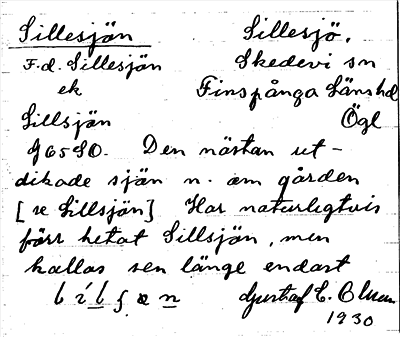 Sillesjön Sillesjö,
F.d. Sillesjön Skedevi sn
ek Finspånga Länshd
Sillsjön Ögl
J65SO. Den nästan ut-
dikade sjön n. om gården
[se Sillsjön] Har naturligtvis
förr hetat Sillsjön, men
kallas sen länge endast
Gustaf E. Blman
1930